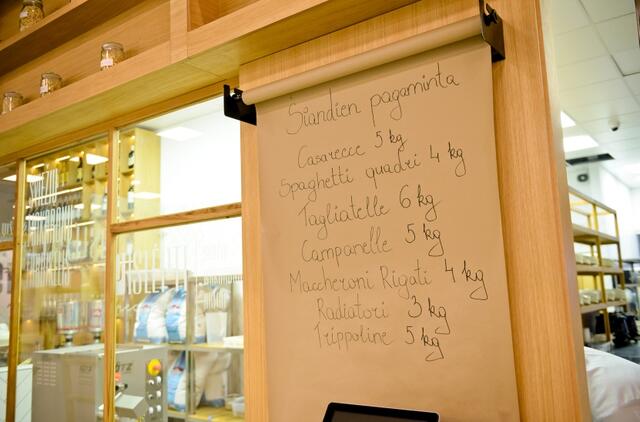 Šiandien pagaminta
Casarecce 5 kg
Spaghetti quadri 4 kg
Tagliatelle 6 kg
Campanelle 5 kg
Maccheroni Rigati 4 kg
Radiatori 3 kg
Trippoline 5 kg